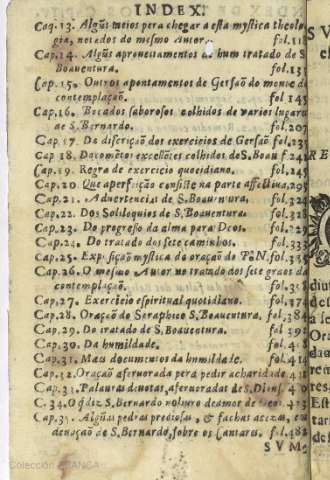 INDEX.
Cap. 13. Algũs meios pera chegar a esta mystica theolo
gia, notados do mesmo Autor. fol. 118
Cap. 14. Algũs aproueitamentos de hum tratado de S.
Boauentura. fol. 131
Cap. 15. Outros apontamentos de Gersaõ do monte da
contemplaçaõ. fol 143
Cap. 16. Bocados saborosos colhidos de varios lugares
de S. Bernardo. fol. 207
Cap. 17. Da discriçaõ dos exercicios de Gersaõ fol. 235
Cap 18. Documẽtos excellẽtes colhidos de S. Boau f 241
Cap. 19. Regra de exercicio quotidiano. fol. 245
Cap. 20. Que a perfeiçaõ consiste na parte affectiua. 295
Cap. 21. Aduertencias de S. Boauentura. fol. 324
Cap. 22. Dos Soliloquios de S. Boauentura. fol. 328
Cap. 23. Do progresso da alma para Deos. fol. 329
Cap. 24. Do tratado dos sete caminhos. fol. 333
Cap. 25. Exposiçaõ mystica da oraçaõ do P. N. fol. 345
Cap. 26. O mesmo Autor no tratado dos sete graos da
contemplaçaõ. fol. 358
Cap. 27. Exercicio espiritual quotidiano. fol. 374
Cap. 28. Oraçaõ do Seraphico S. Boauentura, fol. 384
Cap. 29. Do tratado de S. Boauentura. fol 392
Cap. 30. Da humildade. fol. 418
Cap. 31. Mais documentos da humildade. fol. 414
Cap. 32. Oraçaõ aferuorada pera pedir a charidade
Cap. 33. Palauras deuotas, aferuoradas de S. Dioni.
C. 34. O q̃ diz S. Bernardo no liuro de amor de Deos. 473
Algũas pedras preciosas, & fachas acesas,
de S. Bernardo, sobre os Cantares. fol. 482
SVM
Colección